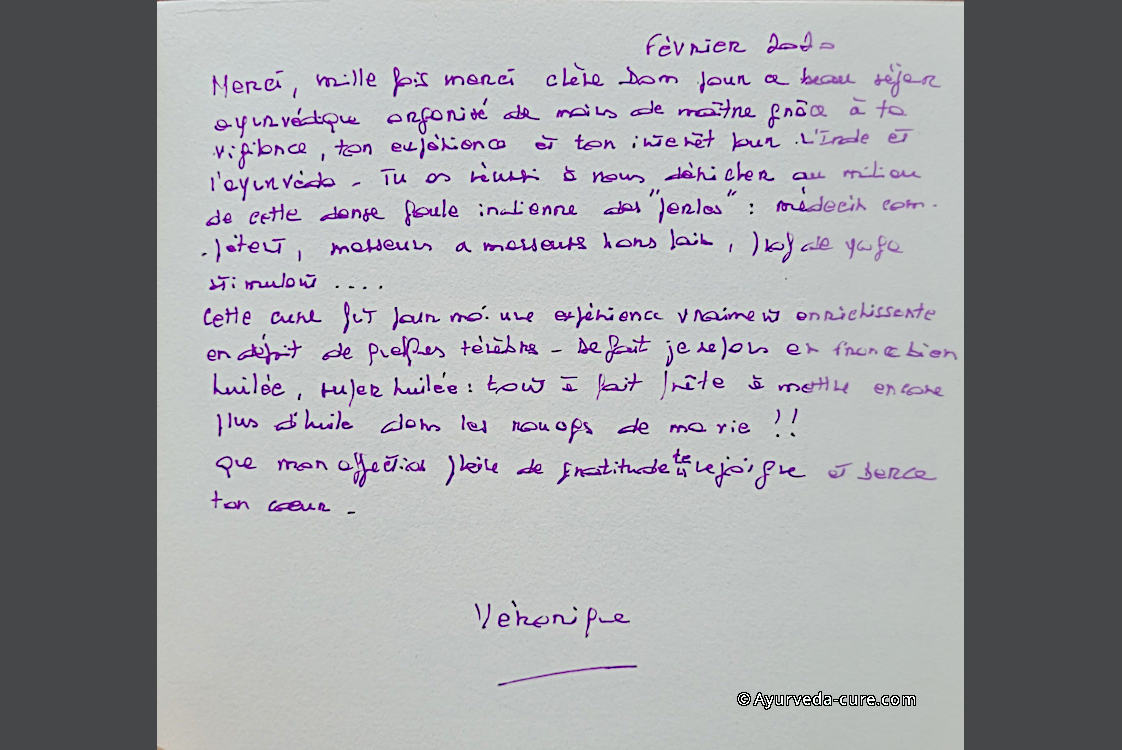 Février 2020
Merci, mille fois merci chère Dom pour ce beau séjour
ayurvédique organisé de mains de maître grâce à ta
vigilance, ton expérience et ton intérêt pour l'Inde et
l'ayurvéda - Tu as réussi à nous dénicher au milieu
de cette dense foule indienne des "perles" : médecin com-
-pétent, masseurs et masseuses hors pair, prof de yoga
stimulant ....
Cette cure fut pour moi une expérience vraiment enrichissante
en dépit de ténèbres - De fait je repars en franc bien
huilée, super huilée : tout à fait prête à mettre encore
plus d'huile dans les rouages de ma vie !!
Que mon affection pleine de gratitude te rejoigne et berce
ton cœur -
Véronique
© Ayurveda-cure.com